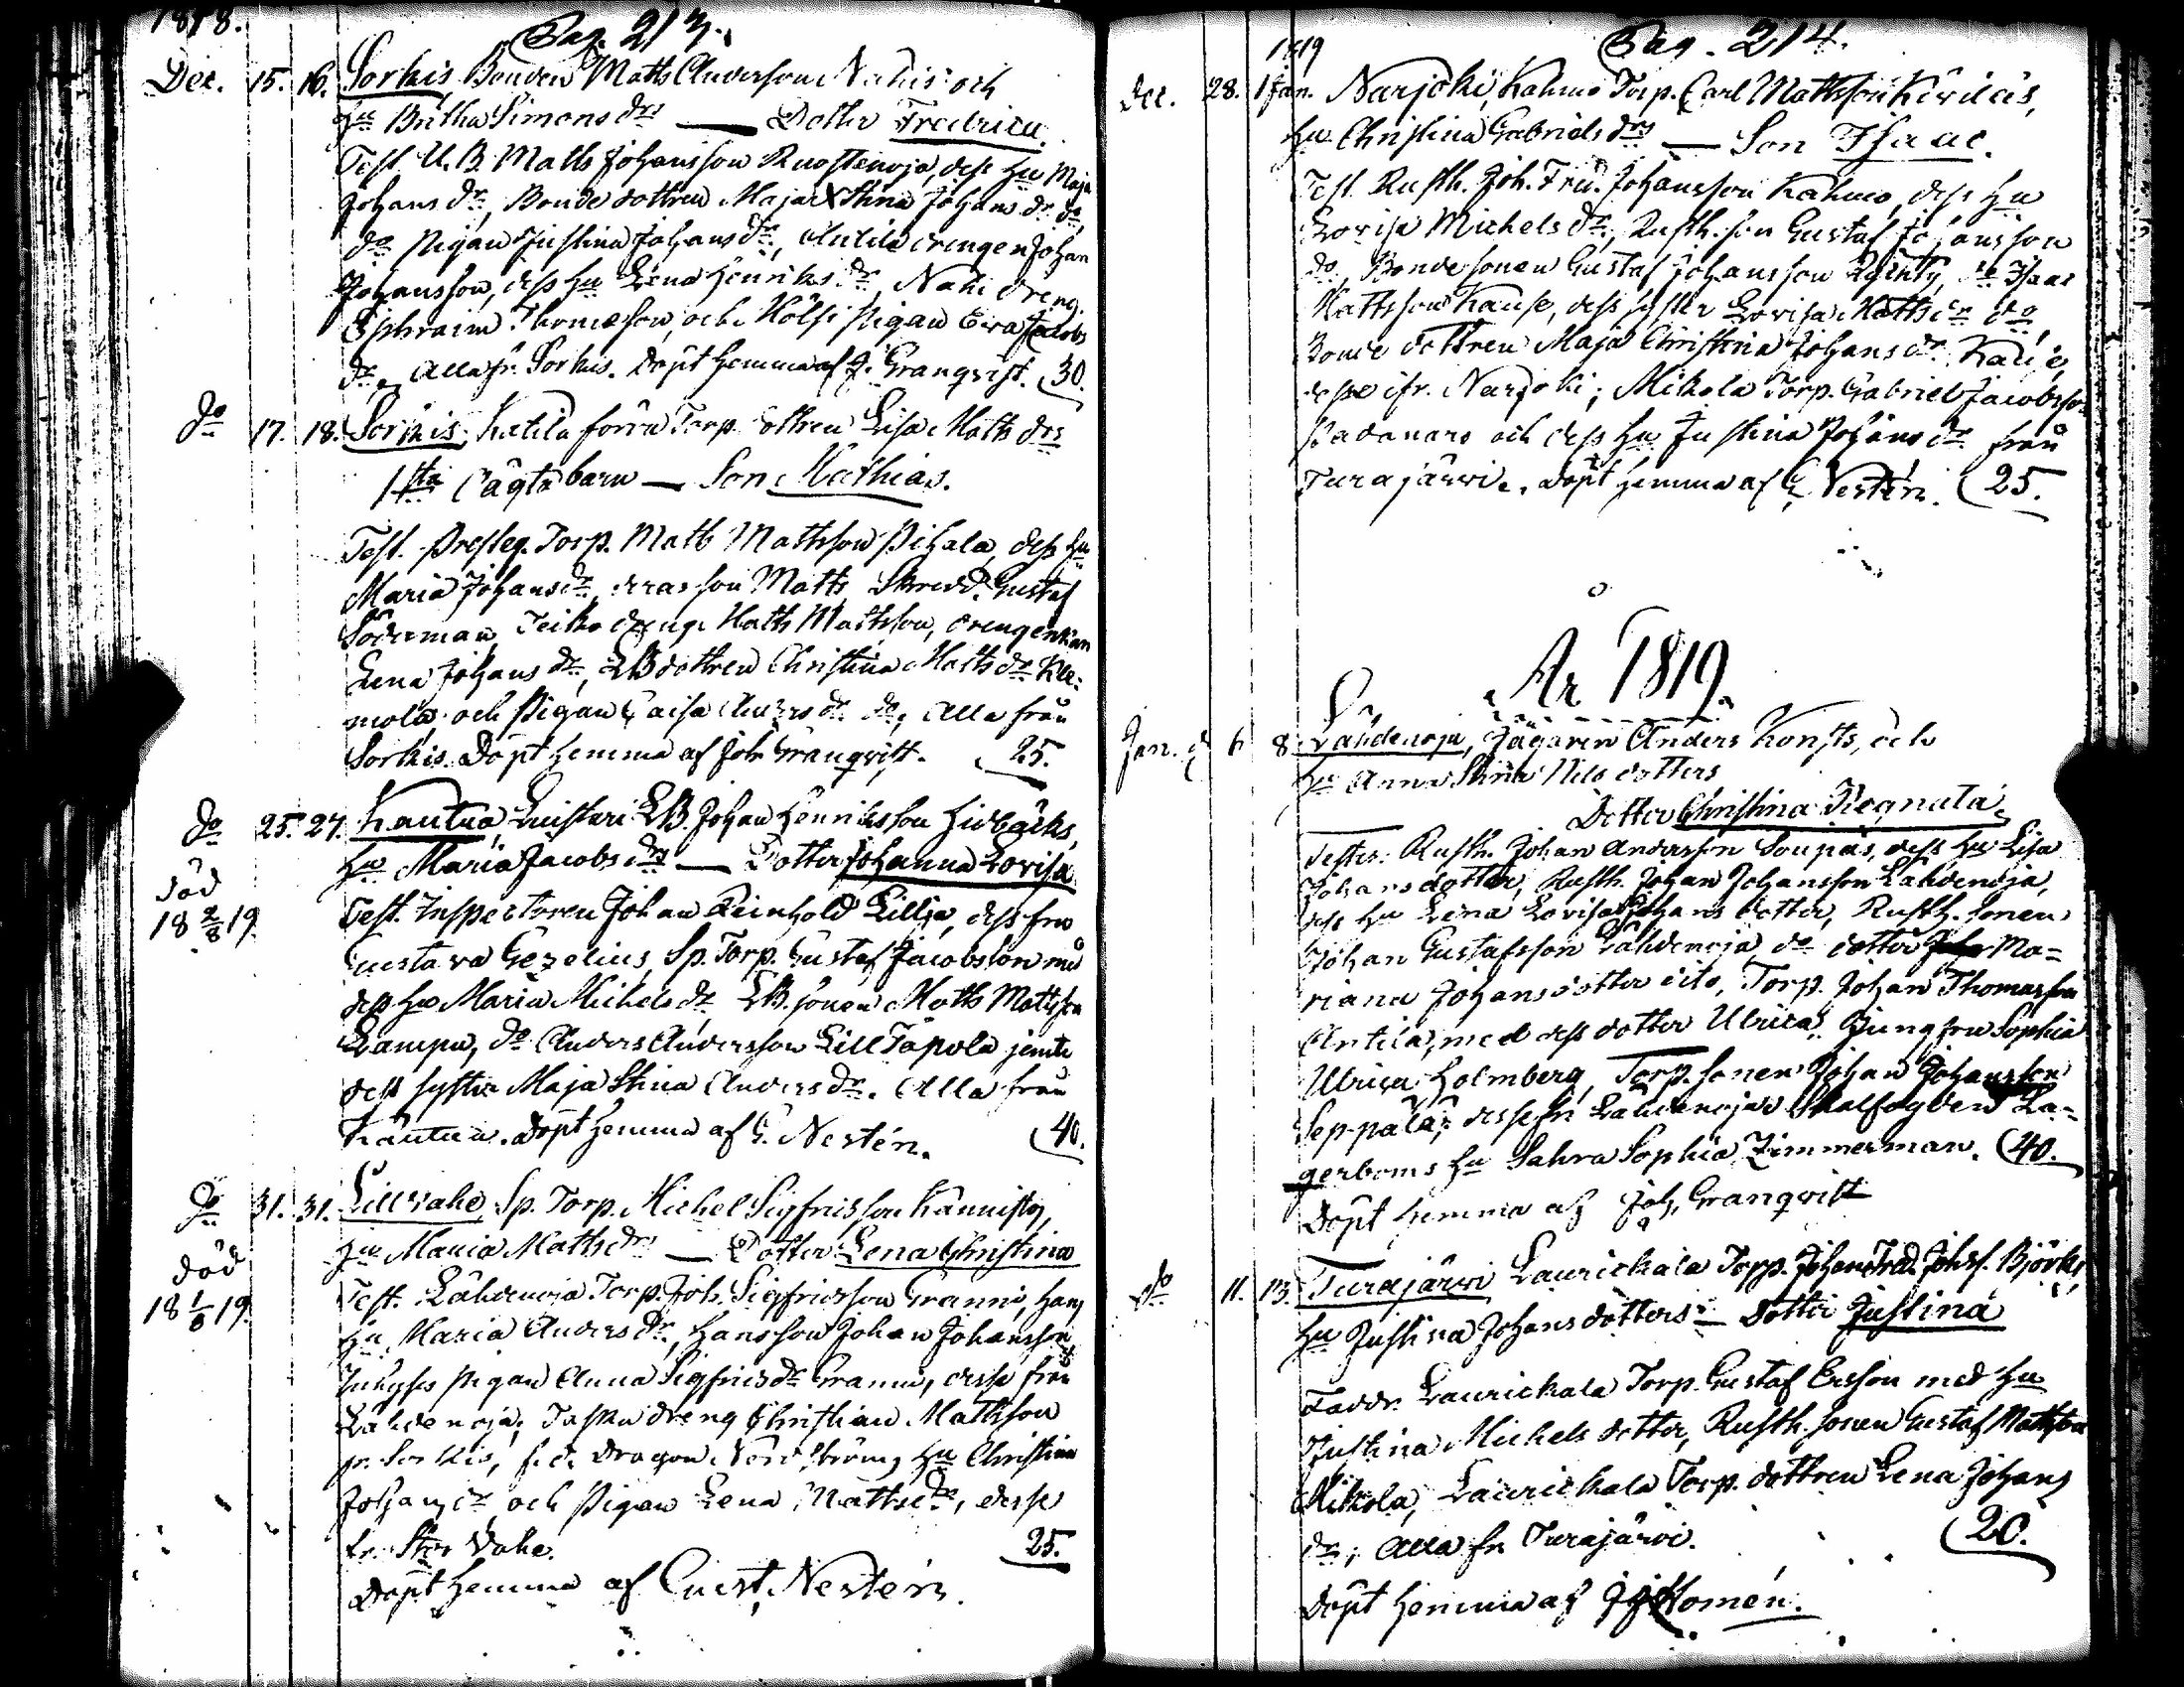 1818.
Pag. 213.
Dec. 15. 16. Sorkis, Bonden Matts Andersson Nakis och
Hu Britha Simons drs — Dotter Fredrica.
Test. U.B. Matts Johansson Ruostenoja, dess Hu Maja
Johans dr, Bonde dottren Maja Stina Johans dr do,
do Pigan Justina Johans dr, Anttila drengen Johan
Johansson, dess Hu Lena Henriks dr, Naki dreng
Ephraim Thomasson, och Hölsi Pigan Eva Jacobs
dr, Alla fr. Sorkis. Döpt hemma af J. Granqvist. 30.
do 17. 18. Sorkis, Katila förra Torp. dottren Lisa Matts drs
1sta oägta barn — Son Mathias.
Test. Presteg. Torp. Matts Mattsson Pihala, dess Hu
Maria Johans dr, deras son Matts, Skredd. Gustaf
Söderman, Teiko dreng Matts Mattsson, drengenkan
Lena Johans dr, LB dottren Christina Matts dr Kle-
mola, och Pigan Caisa Anders dr do, Alla från
Sorkis. Döpt hemma af Joh. Granqvist. 25.
do 25. 27. Kautua, Luistari LB. Johan Henriksson Hidbäcks,
Hu Maria Jacobs drs — Dotter Johanna Lovisa
död
18 2/8 19.
Test. Inspectoren Johan Reinhold Lillja, dess fru
Gustava Gezelius, Sp. Torp. Gustaf Jacobsson med
dess Hu Maria Michels dr LB. sonen Matts Mattsson
Lampa, do Anders Andersson Lill Tapola jemte
dess syster Maja Stina Anders dr. Alla från
Kautua. Döpt hemma af G. Nestén. 40.
do 31. 31. Lillvahe, Sp. Torp. Michel Sigfridsson Kännistö,
Hu Maria Matts drs — Dotter Lena Christina
död
18 1/8 19.
Test. Lähdenoja Torp. Joh. Sigfridsson Granni, hans
Hu Maria Anders dr, hans son Johan Johansson
pigan Anna Sigfrids dr Granni, desse från
Lähdenoja; Taska dreng Christian Mattsson
fr. Sorkis, f.d. Dragon Nordström Hu Christina
Johans dr och Pigan Lena Matts dr, desse
fr. Stor Vahe. 25.
Döpt hemma af Gust. Nestén.
Pag. 214.
1819
Dec. 28. 1 Jan. Narjoki, Kahmo Torp. Carl Mattsson Kivilcis,
Hu Christina Gabriels drs — Son Isaac.
Test. Rusth. Joh. Fred. Johansson Kahmo, dess Hu
Lovisa Michels dr, Rusth. son Gustaf Johansson
do, Bonde sonen Gustaf Johansson Ryenty, do Isaac
Mattsson Kause, dess syster Lovisa Matts dr do
Bonde dottren Maja Christina Johans dr Kause,
desse ifr. Narjoki; Mikola Torp. Gabriel Jacobsson
och dess Hu Justina Johans dr från
Turajärwi. Döpt hemma af G. Nestén. 25.
Ar 1819.
Jan. d 6 8. Lähdenoja, Jägaren Anders Konsts, och
Hu Anna Stina Nils dotters
Dotter Christina Regnata
Testes: Rusth. Johan Andersson Soupas, dess Hu Lisa
Johansdotter, Rusth. Johan Johansson Lähdenoja,
dess Hu Lena Lovisa Johans dotter, Rusth. sonen
Johan Gustafsson Lähdenoja, do dotter Ma=
riana Johansdotter dito, Torp. Johan Thomasson
Antila, med dess dotter Ulrica, Jungfru Sophia
Ulrica Holmberg, Torp. sonen Johan Johansson
Seppälä; desse fr. Lähdenoja, Skalfogden La=
gerboms Hu Sahra Sophia Zimmerman. 40.
Döpt hemma af Joh. Granqvist
do 11. 13. Turajärwi Laurickala Torp. Johan Fred. Johss. Björks,
Hu Justina Johansdotters — dotter Justina
Faddr. Laurickala Torp. Gustaf Ersson med Hu
Justina Michels dotter, Rusth. sonen Gustaf Mattsson
Mikola, Laurickala Torp. dottren Lena Johans
dr; Alla fr. Turajärwi. 20.
Döpt hemma af Homén.